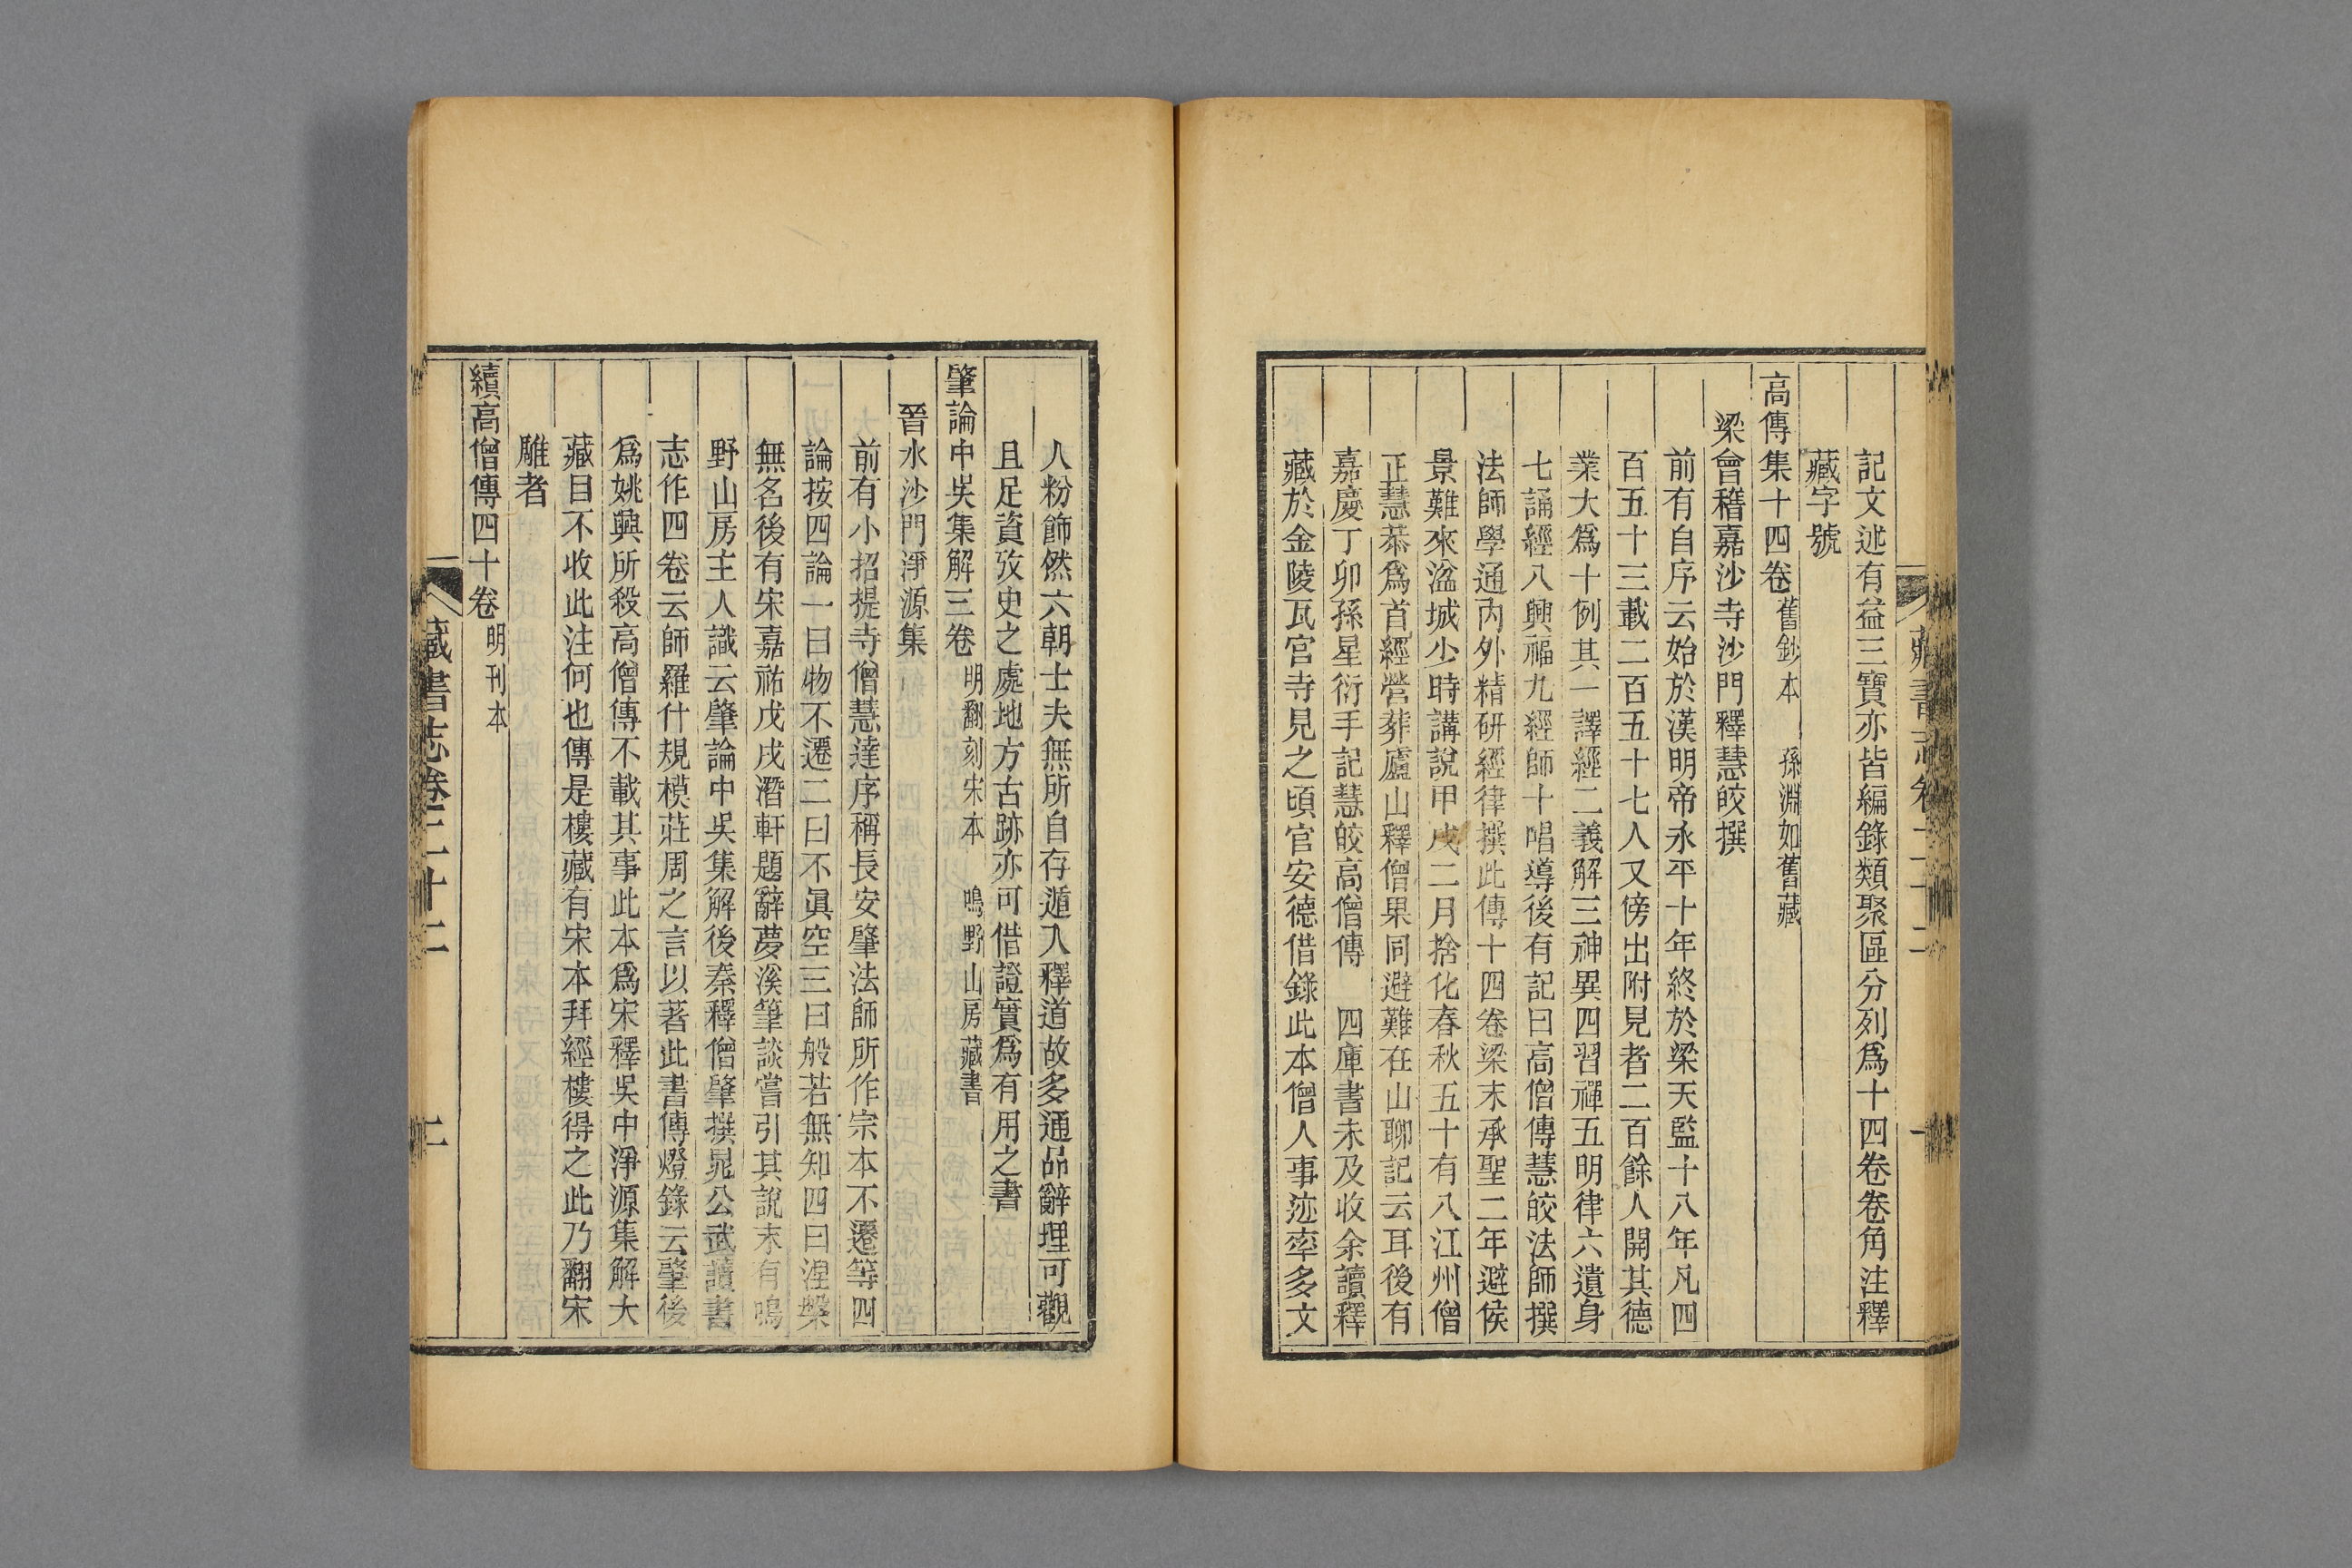 記文述有益三寶亦皆編錄類聚區分列爲十四卷卷角注釋
藏字號
高傳集十四卷 舊鈔本 孫淵如舊藏
梁會稽嘉沙寺沙門釋慧皎撰
前有自序云始於漢明帝永平十年終於梁天監十八年凡四
百五十三載二百五十七人又傍出附見者二百餘人開其德
業大爲十例其一譯經二義解三神異四習禪五明律六遺身
七誦經八興福九經師十唱導後有記曰高僧傳慧皎法師撰
法師學通內外精研經律撰此傳十四卷梁末承聖二年避侯
景難來湓城少時講說甲戌二月捨化春秋五十有八江州僧
正慧恭爲首經營葬廬山釋僧果同避難在山聊記云耳後有
嘉慶丁卯孫星衍手記慧皎高僧傳 四庫書未及收余讀釋
藏於金陵瓦官寺見之頃官安德借錄此本僧人事迹率多文
人粉飾然六朝士夫無所自存遁入釋道故多通品辭理可觀
且足資攷史之處地方古跡亦可借證實爲有用之書
肇論中吳集解三卷 明翻刻宋本 鳴野山房藏書
晉水沙門淨源集
前有小招提寺僧慧達序稱長安肇法師所作宗本不遷等四
論按四論一曰物不遷二曰不眞空三曰般若無知四曰涅槃
無名後有宋嘉祐戊戌潛軒題辭夢溪筆談嘗引其說末有鳴
野山房主人識云肇論中吳集解後秦釋僧肇撰晁公武讀書
志作四卷云師羅什規模莊周之言以著此書傳燈錄云肇後
爲姚興所殺高僧傳不載其事此本爲宋釋吳中淨源集解大
藏目不收此注何也傳是樓藏有宋本拜經樓得之此乃翻宋
雕者
續高僧傳四十卷 明刊本
藏書志卷二十二 二